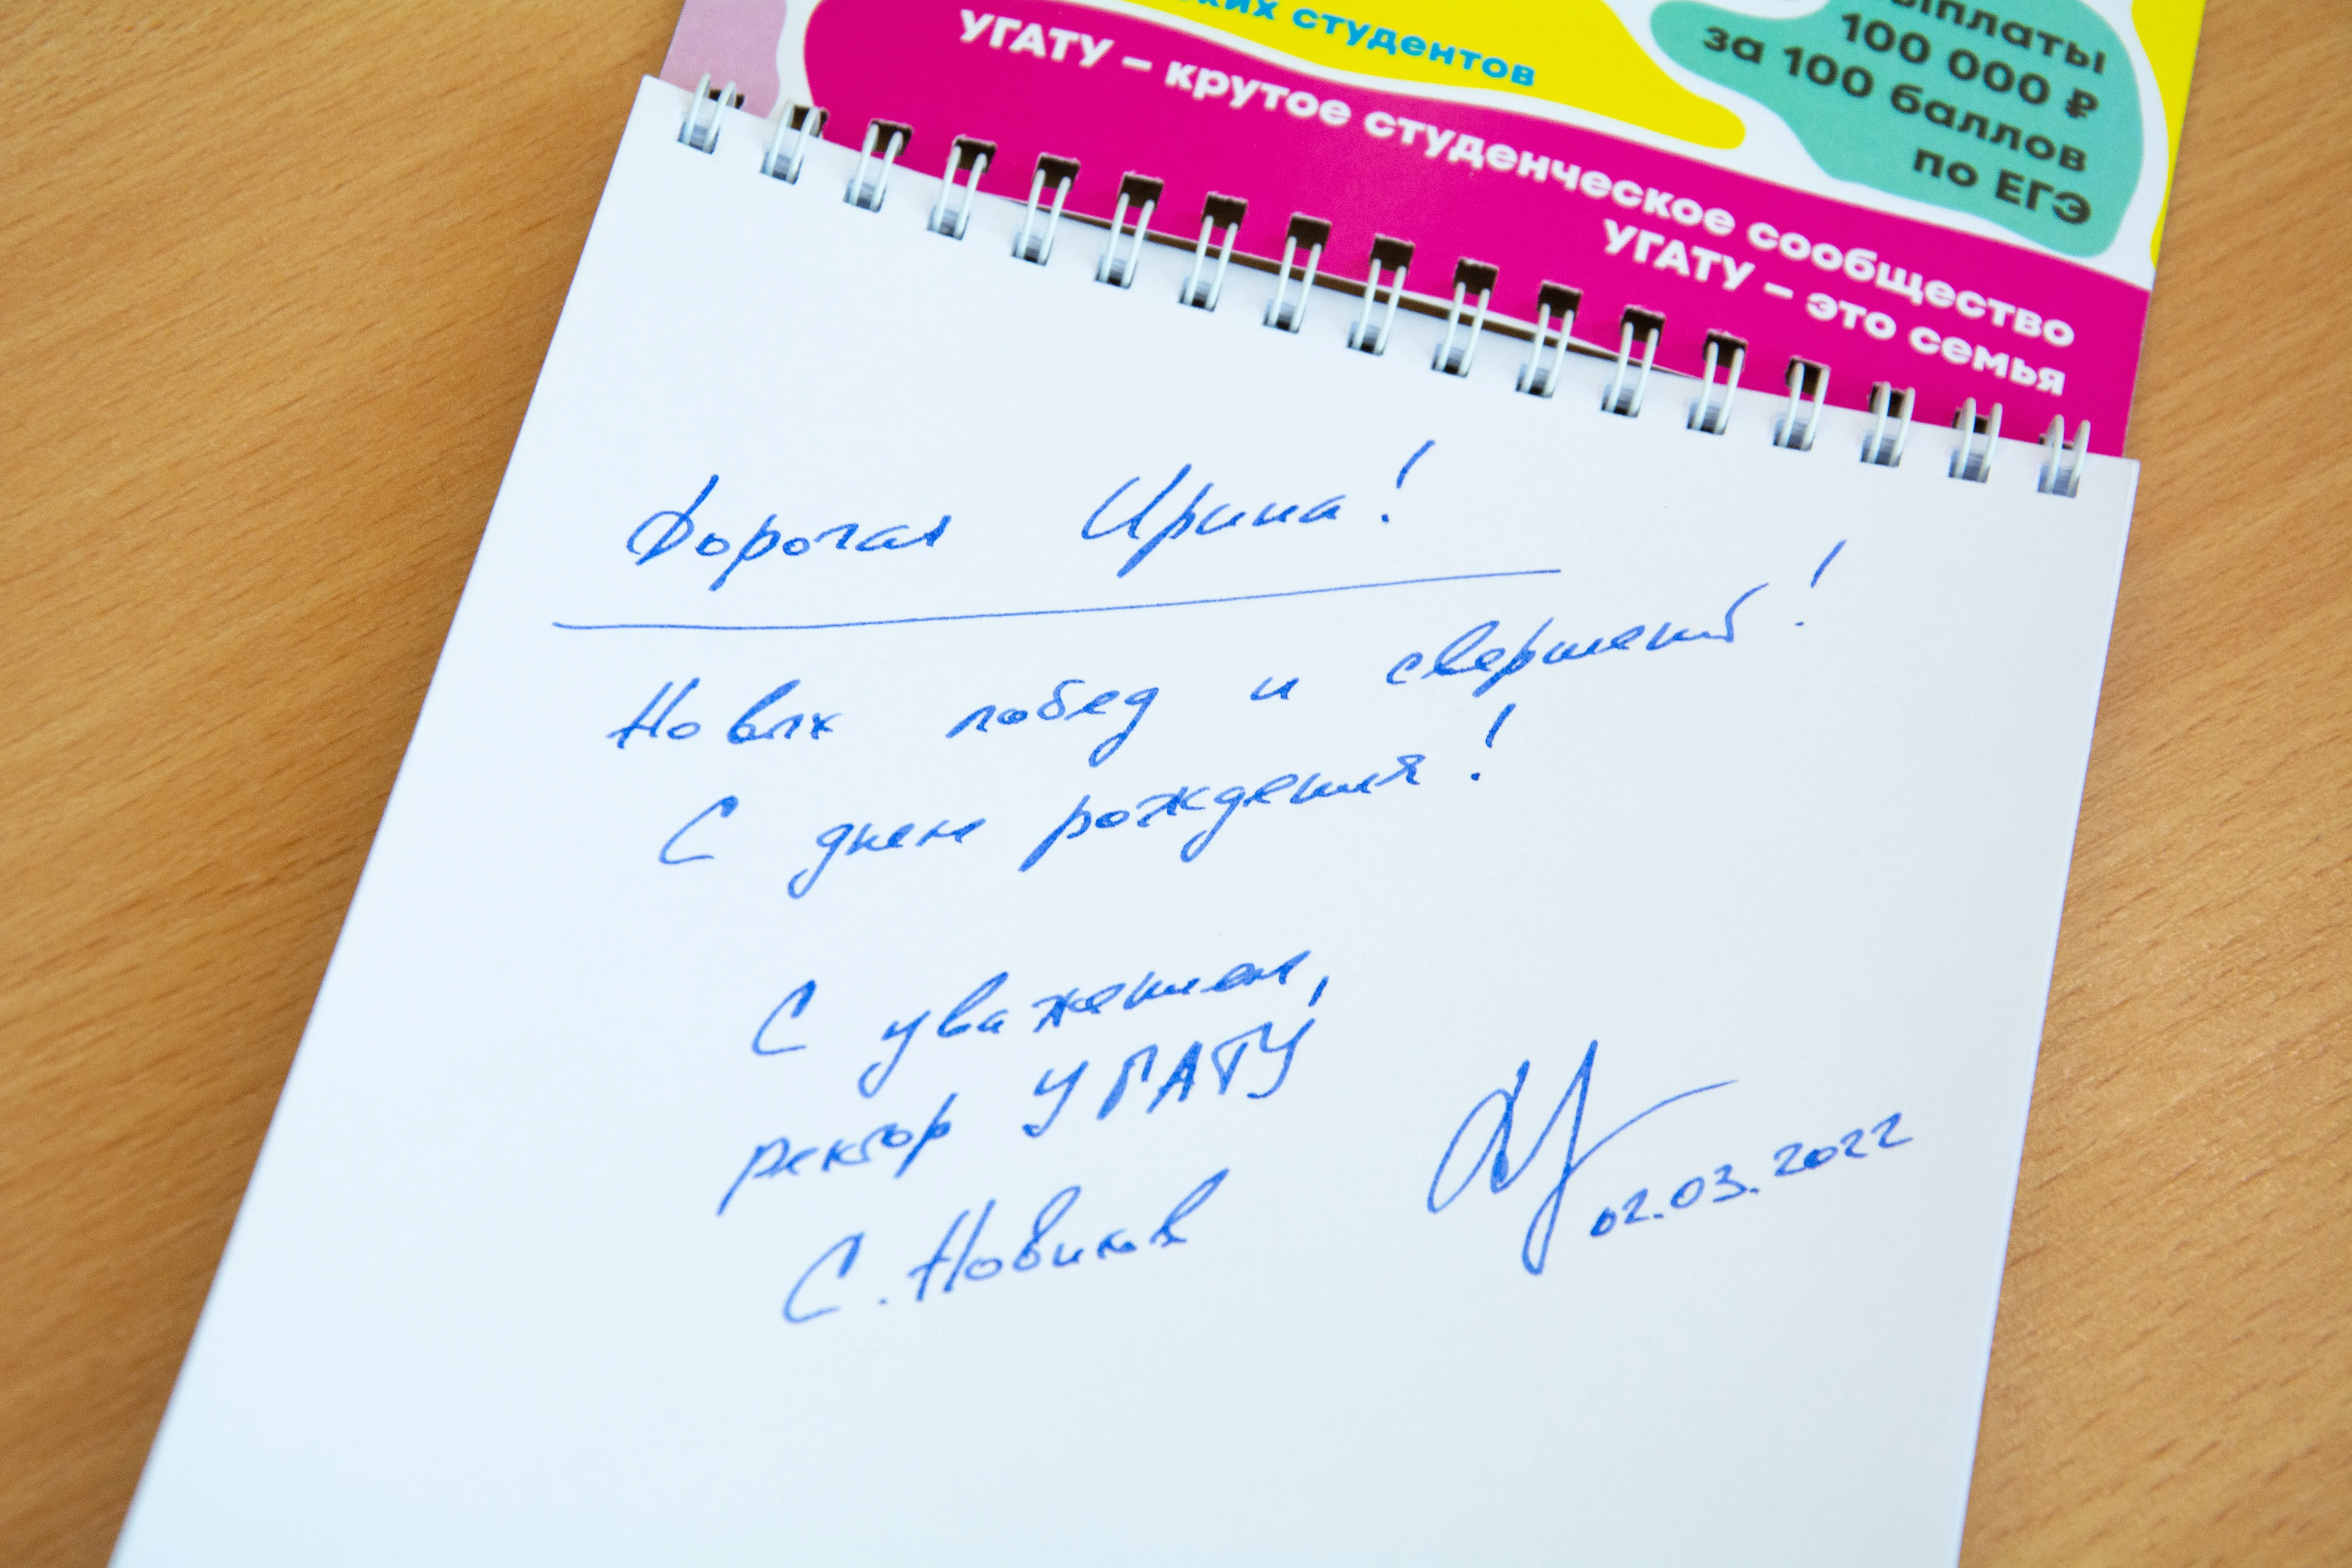 студентов
УГАТУ – крутое студенческое сообщество
УГАТУ – это семья
100 000 ₽
за 100 баллов
по ЕГЭ
Дорогая Ирина!
Новых побед и свершений!
С днем рождения!
С уважением,
ректор УГАТУ
С. Новиков
02.03.2022